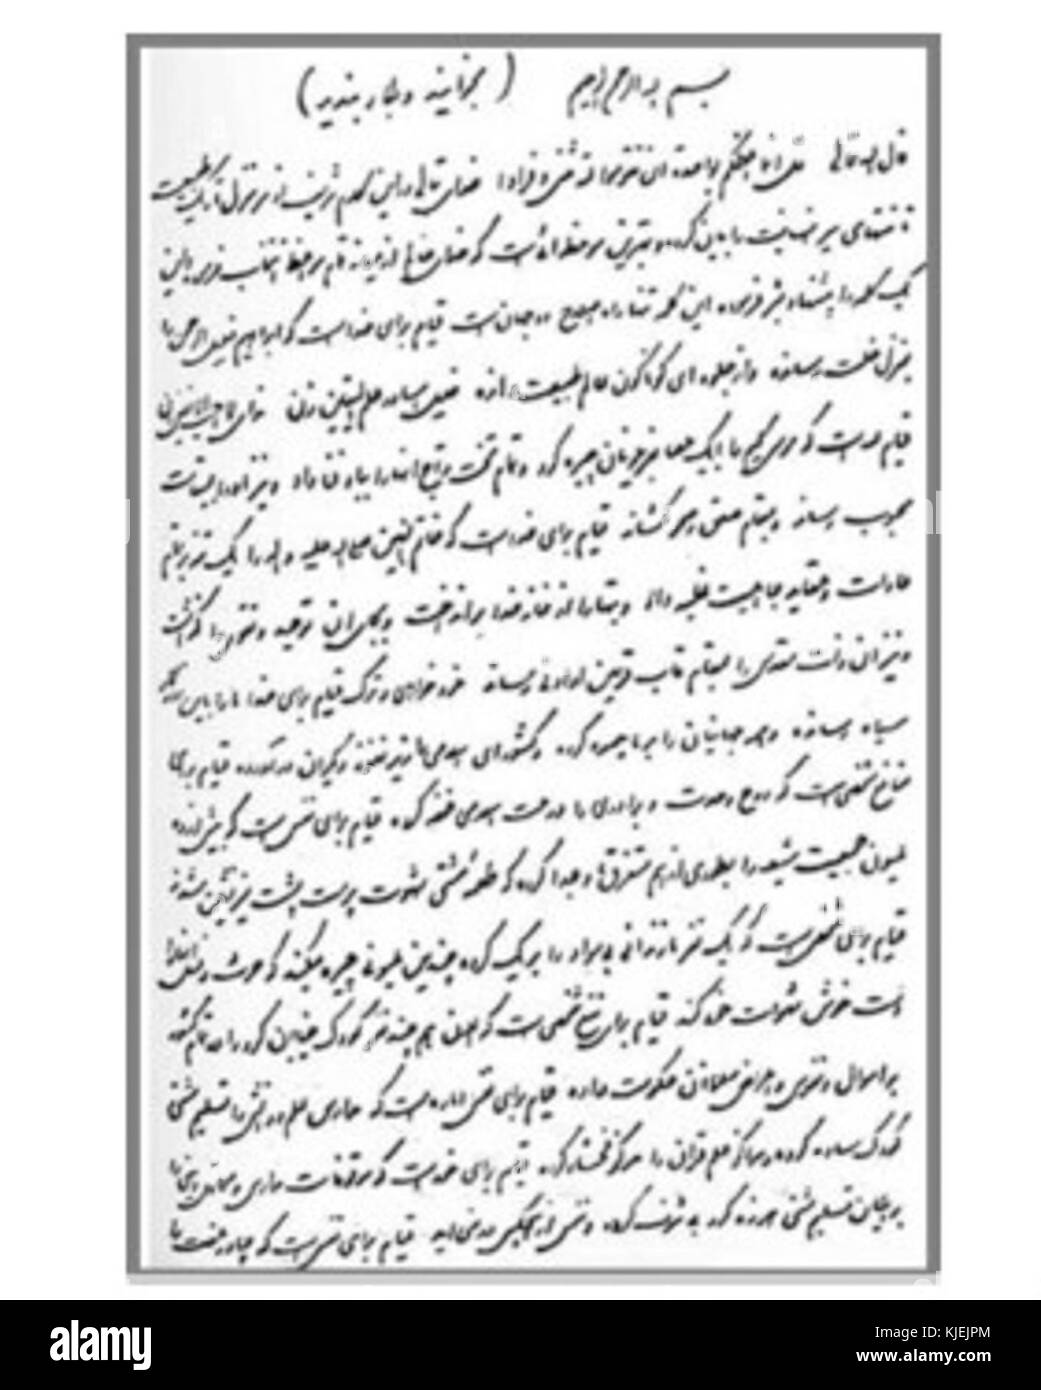 بسم الله الرحمن الرحیم (بخوانید و بکار بندید)
قال الله تعالی قل انما اعظکم بواحدة ان تقوموا لله مثنی و فرادا خدای تعالی در این کلام شریف از سر منزل تاریک طبیعت
تا منتهای سیر انسانیت را بیان کرده و بهترین موعظه‌ائیست که خدای عالم از میانه تمام مواعظ انتخاب فرموده و این
یک کلمه را پیشنهاد بشر فرموده این کلمه تنها راه اصلاح دو جهان است قیام برای خدا است که ابراهیم خلیل الرحمن را
بمنزل خلت رسانده و از جلوه‌های گوناگون عالم طبیعت رهانده خلیل آسا در علم الیقین زن ندای لا احب الافلین زن
قیام لله است که موسی کلیم را با یک عصا بفرعونیان چیره کرد و تمام تخت و تاج آنها را بباد فنا داد و نیز او را بمیقات
محبوب رساند و بمقام صعق و صحو کشاند قیام برای خدا است که خاتم النبیین صلی الله علیه و آله را یک تنه بر تمام
عادات و عقاید جاهلیت غلبه داد و بتها را از خانه خدا برانداخت و بجای آن توحید و تقوی را گذاشت
و نیز آن ذات مقدس را بمقام قاب قوسین او ادنی رساند خودخواهی و ترک قیام برای خدا ما را باین روزگار
سیاه رسانده و همه جهانیان را بر ما چیره کرده و کشورهای اسلامی را زیر نفوذ دیگران درآورده قیام برای
منافع شخصی است که روح وحدت و برادری را در ملت اسلامی خفه کرده قیام برای نفس است که بیش از ده
ملیون جمعیت شیعه را بطوری از هم متفرق و جدا کرده که طعمه مشتی شهوت پرست پشت میز نشین شدند
قیام برای شخص است که یک نفر مازندرانی بیسواد را بر یک گروه چندین ملیونی چیره میکند که حرث و نسل آنها را
دستخوش شهوات خود کند قیام برای نفع شخصی است که الان هم چند نفر کودک خیابان گرد را در تمام کشور
بر اموال و نفوس و اعراض مسلمانان حکومت داده قیام برای نفس اماره است که مدارس علم و دانش را تسلیم مشتی
کودک ساده کرده و مراکز علم قرآن را مرکز فحشا کرده قیام برای خود است که موقوفات مدارس و محافل دینی را
برایگان تسلیم مشتی هرزه گرد بی شرف کرده و نفس از هیچکس در نمی‌آید قیام برای نفس است که چادر عفت را
alamy
Image ID: KJEJPM
www.alamy.com